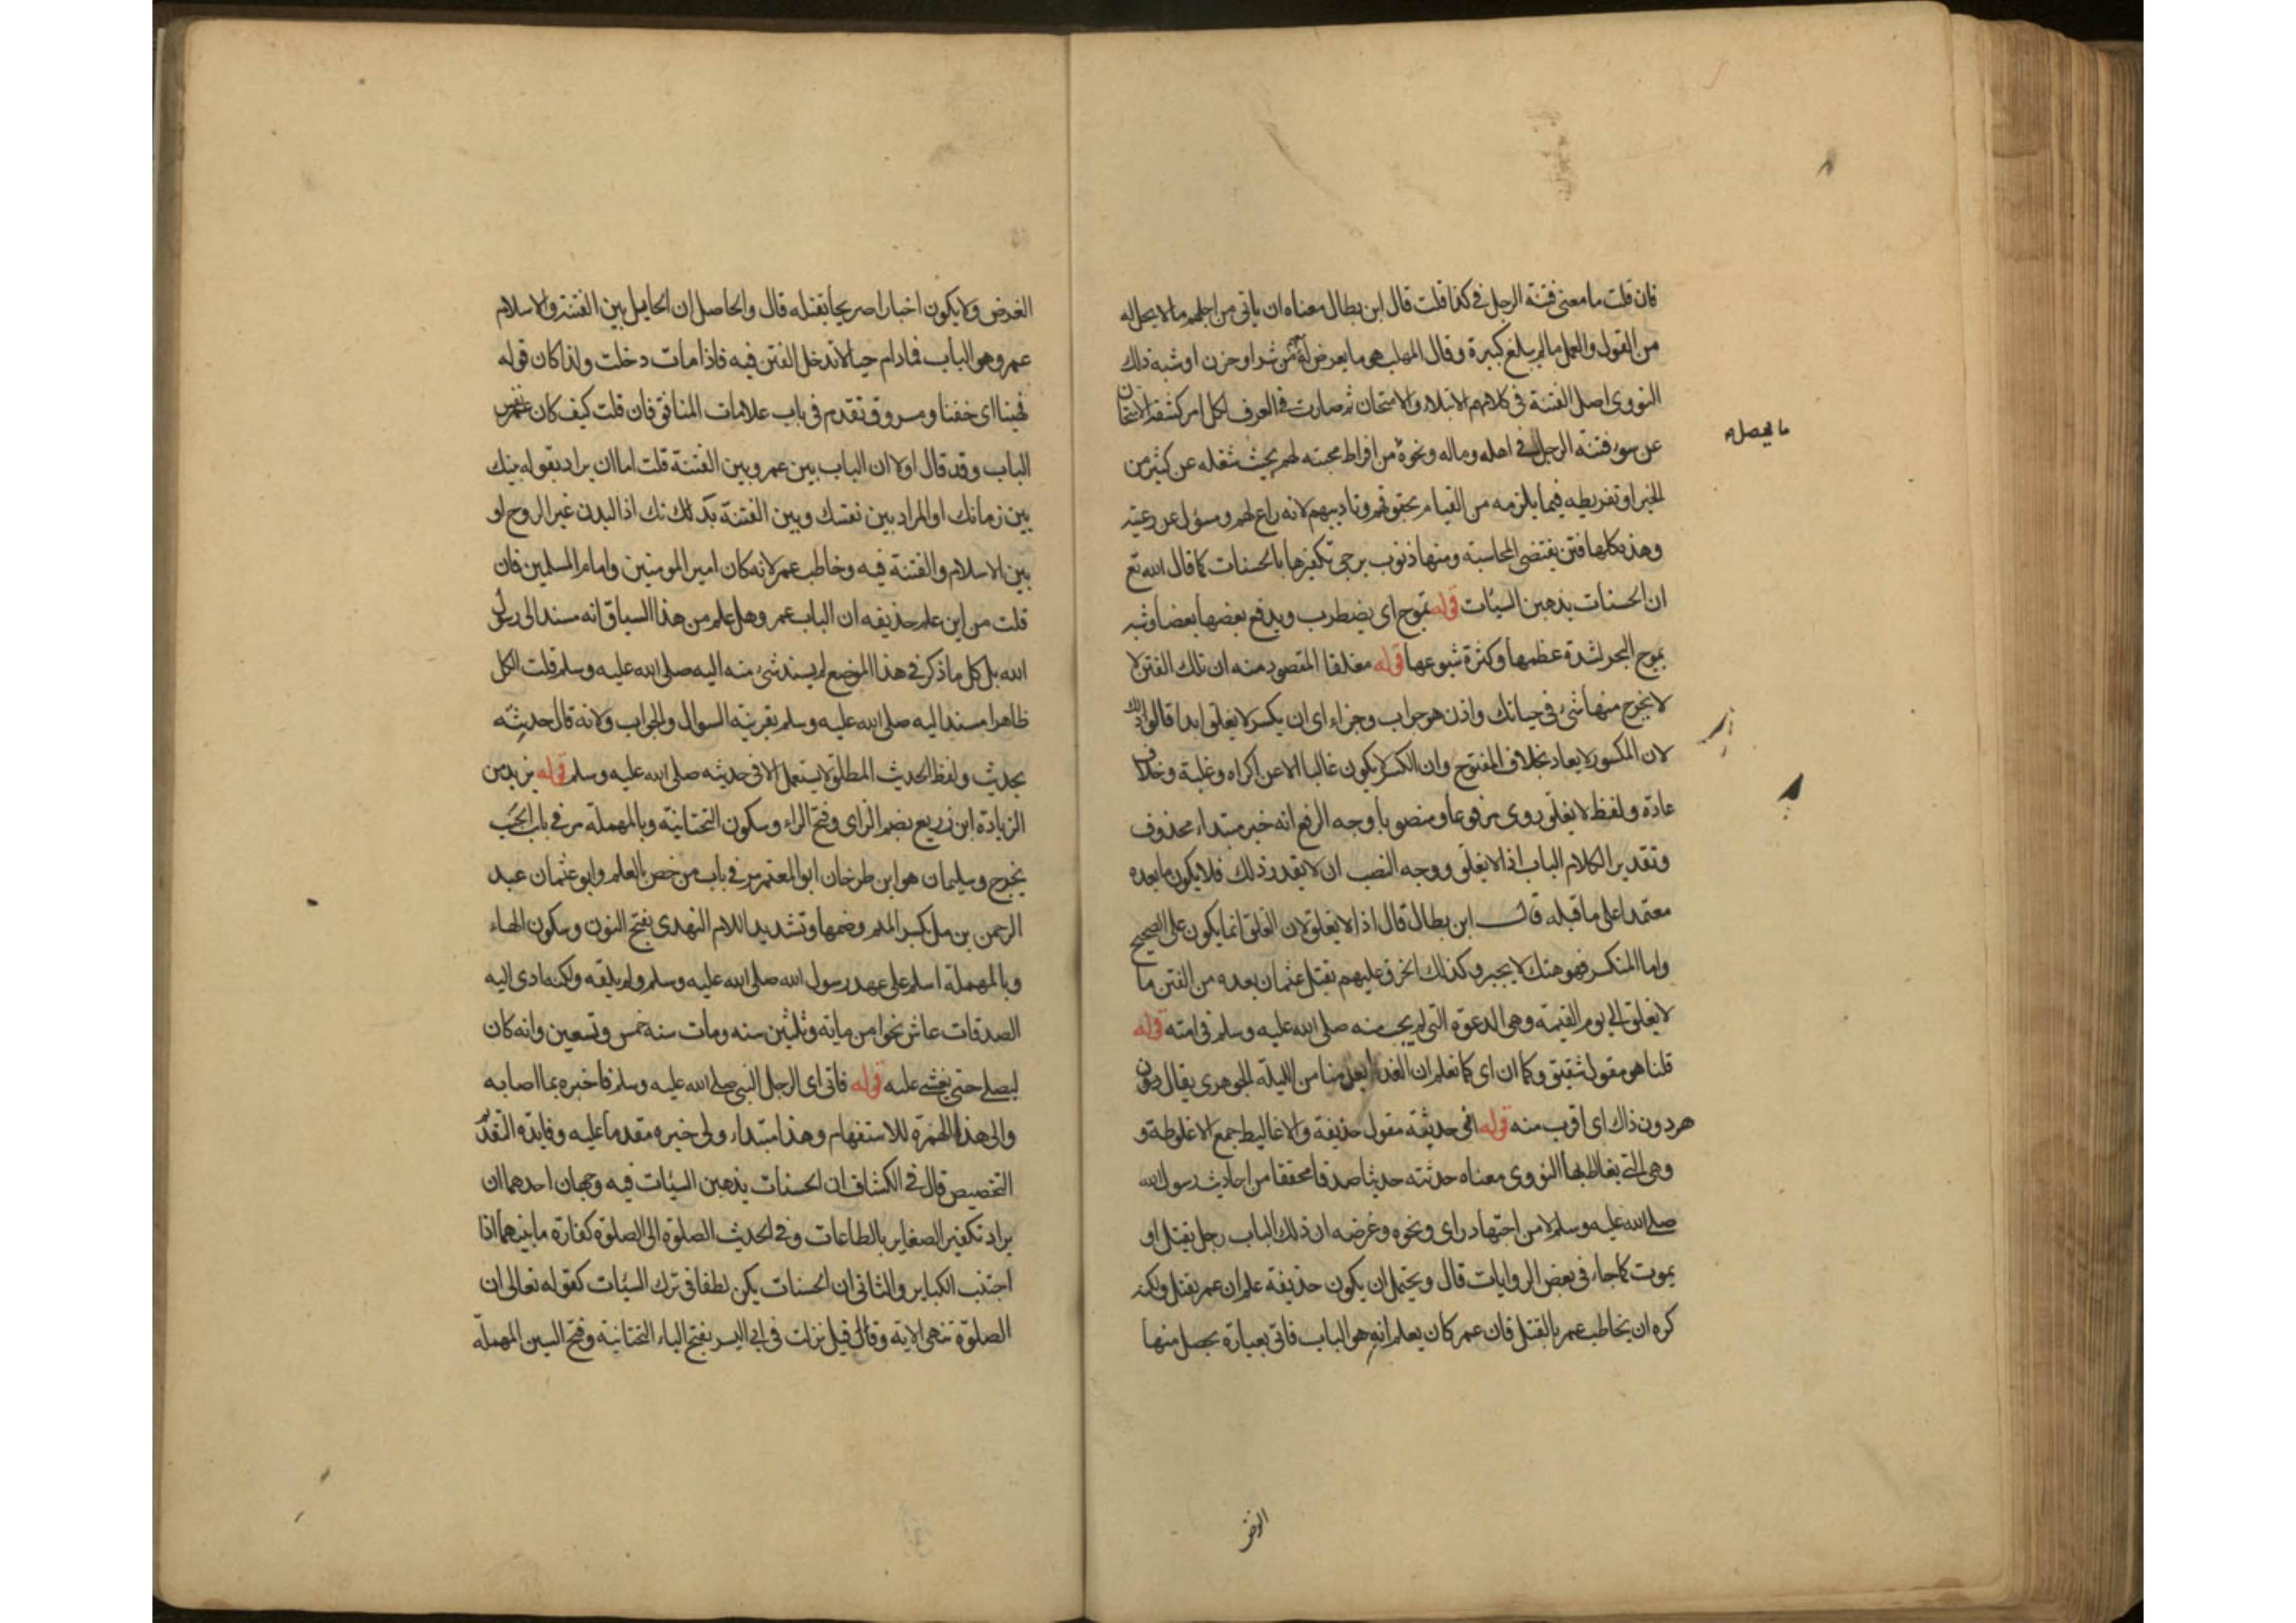 فان قلت ما معنى فتنة الرجل في كذا قلت قال ابن بطال معناه ان ياتى من اجلهم ما لا يحل له
من القول والعمل ما لم يبلغ كبيرة وقال المهلب هو ما يعرض له من شر او حزن او شبه ذلك
النووى اصل الفتنة في كلامهم الابتلاء والامتحان ثم صارت في العرف لكل امر كشفه الامتحان
عن سوء فتنة الرجل في اهله وماله ونحوه من افراط محبته لهم بحيث شغله عن كثير من
الخير او تفريطه فيما يلزمه من القيام بحقوقهم وتاديبهم لانه راع لهم ومسؤل عن رعيته
وهذه كلها فتن يقتضى المحاسبة ومنها ذنوب يرجى تكفيرها بالحسنات كما قال الله تع
ان الحسنات يذهبن السيئات قوله تموج اى يضطرب ويدفع بعضها بعضا وشبه
بموج البحر لشدة عظمها وكثرة شيوعها قوله مغلقا المقصود منه ان تلك الفتن لا
لا يخرج منها شىء في حياتك واذن هو جواب وجزاء اى ان يكسر لا يغلق ابدا قالوا ذلك
لان المكسور لا يعاد بخلاف المفتوح وان الكسر لا يكون غالبا الا عن اكراه وغلبة وخلاف
عادة ولفظ لا يغلق روى مرفوعا ومنصوبا وجه الرفع انه خبر مبتداء محذوف
وتقدير الكلام الباب اذا لا يغلق ووجه النصب ان لا يقدر ذلك فلا يكون ما بعده
معتمدا على ما قبله قال ابن بطال قال اذا لا يغلق لان الغلق انما يكون على الصحيح
واما المنكسر فهو هتك لا يجبر وكذلك انخرق عليهم بقتل عثمان بعده من الفتن ما
لا يغلق الى يوم القيمة وهى الدعوة التى لم يجب منه صلى الله عليه وسلم في امته قوله
قلنا هو مقول شقيق وكما ان اى كما نعلم ان الغد ابعد منا من الليلة الجوهرى يقال دون
هر دون ذاك اى اقرب منه قوله انى حديثة مقول حذيفة والاغاليط جمع الاغلوطة و
وهى التى يغالط بها النووى معناه حدثته حديثا صدقا محققا من احاديث رسول الله
صلى الله عليه وسلم لا من اجتهاد راى ونحوه وغرضه ان ذلك الباب رجل يقتل او
يموت كما جاء في بعض الروايات قال ويحتمل ان يكون حذيفة علم ان عمر يقتل ولكنه
كره ان يخاطب عمر بالقتل فان عمر كان يعلم انه هو الباب فاتى بعبارة يحصل منها
ما يحصل به
الغرض
الغرض ولا يكون اخبارا صريحا بقتله قال والحاصل ان الحايل بين الفتنة والاسلام
عمر وهو الباب فما دام حيا لا تدخل الفتن فيه فاذا مات دخلت ولذا كان قوله
فهبنا اى خفنا ومسروق تقدم في باب علامات المنافق فان قلت كيف كان عمر نفس
الباب وقد قال اولا ان الباب بين عمر وبين الفتنة قلت اما ان يراد بقوله بينك
بين زمانك او المراد بين نفسك وبين الفتنة بدنك اذ البدن غير الروح او
بين الاسلام والفتنة فيه وخاطب عمر لانه كان امير المومنين وامام المسلمين فان
قلت من اين علم حذيفه ان الباب عمر وهل علم من هذا السياق انه مسند الى رسول
الله بل كل ما ذكر في هذا الموضع لم يسند شئ منه اليه صلى الله عليه وسلم قلت الكل
ظاهرا مسند اليه صلى الله عليه وسلم بقرينة السوال والجواب ولانه قال حدثته
بحديث ولفظ الحديث المطلق لا يستعمل الا في حديثه صلى الله عليه وسلم قوله يزيد من
الزيادة ابن زريع بضم الزاى وفتح الراء وسكون التحتانية وبالمهملة مر في باب الجنب
يخرج وسليمان هو ابن طرخان ابو المعتمر مر في باب من خص بالعلم وابو عثمان عبد
الرحمن بن مل بكسر الميم وضمها وتشديد اللام النهدى بفتح النون وسكون الهاء
وبالمهملة اسلم على عهد رسول الله صلى الله عليه وسلم ولم يلقه ولكنه ادى اليه
الصدقات عاش نحوا من ماية وثلثين سنه ومات سنة خمس وتسعين وانه كان
ليصلى حتى يغشى عليه قوله فاتى اى الرجل النبى صلى الله عليه وسلم فاخبره بما اصابه
والى هذا الهمزة للاستفهام وهذا مبتداء ولى خبره مقدما عليه وفايدة التقديم
التخصيص قال في الكشاف ان الحسنات يذهبن السيئات فيه وجهان احدهما ان
يراد تكفير الصغاير بالطاعات وفي الحديث الصلوة الى الصلوة كفارة ما بينهما اذا
اجتنب الكباير والثانى ان الحسنات يكن لطفا في ترك السيئات كقوله تعالى ان
الصلوة تنهى الاية وقال قيل نزلت في ابى اليسر بفتح الياء التحتانية وفتح السين المهملة